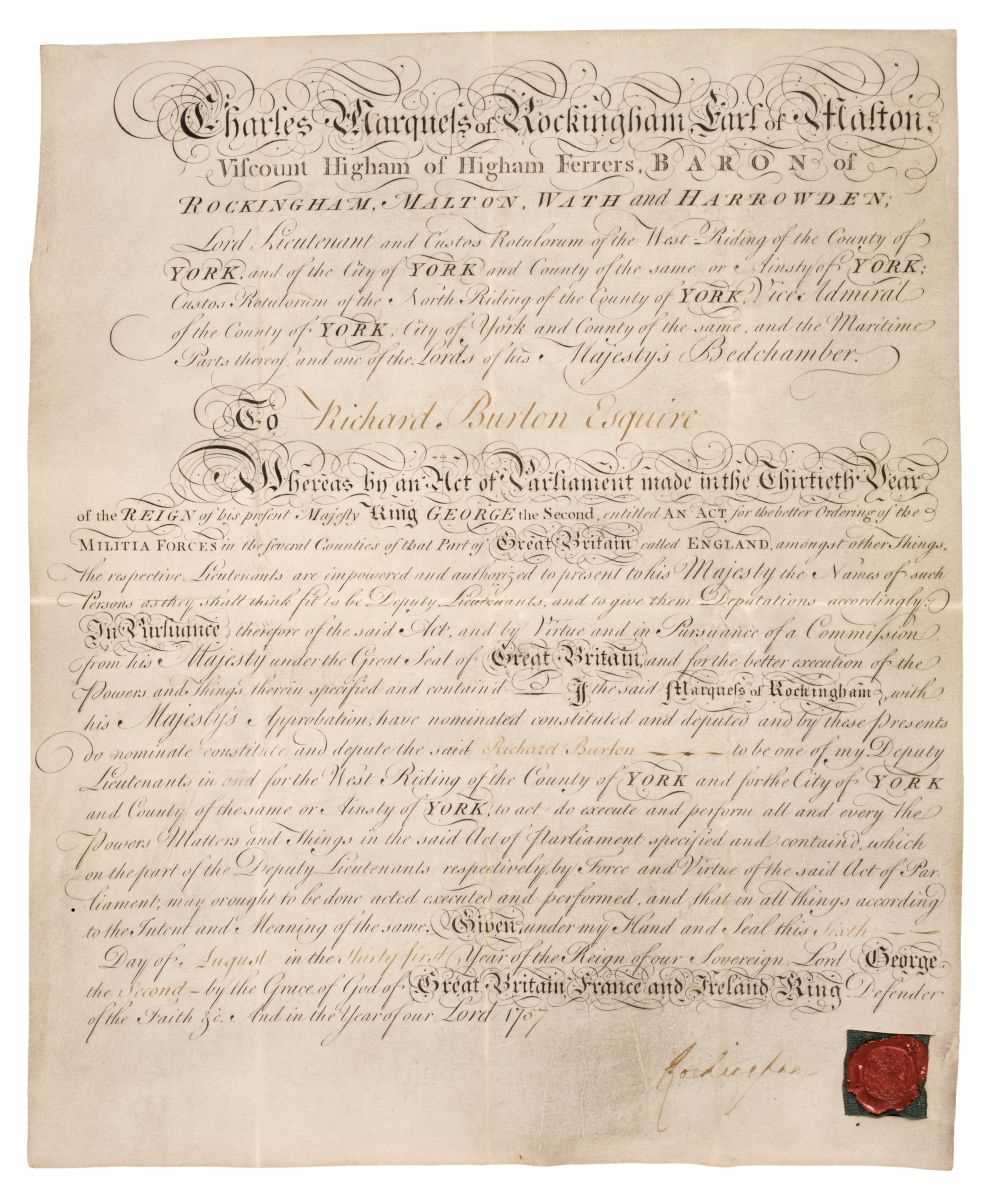 Charles Marqueſs of Rockingham, Earl of Malton,
Viſcount Higham of Higham Ferrers, BARON of
ROCKINGHAM, MALTON, WATH and HARROWDEN;
Lord Lieutenant and Custos Rotulorum of the West-Riding of the County of
YORK, and of the City of YORK and County of the same or Ainsty of YORK;
Custos Rotulorum of the North Riding of the County of YORK, Vice Admiral
of the County of YORK, City of York and County of the same, and the Maritime
Parts thereof, and one of the Lords of his Majesty's Bedchamber.
To Richard Burton Esquire
Whereas by an Act of Parliament made in the Thirtieth Year,
of the REIGN of his preſent Majeſty King GEORGE the Second, entitled AN ACT, for the better Ordering of the
MILITIA FORCES in the ſeveral Counties of that Part of Great Britain called ENGLAND, amongst other Things,
the respective Lieutenants are impowered and authorized to present to his Majesty the Names of such
Persons as they shall think fit to be Deputy Lieutenants, and to give them Deputations accordingly:
In Purſuance therefore of the said Act, and by Virtue and in Pursuance of a Commission
from his Majesty under the Great Seal of Great Britain, and for the better execution of the
Powers and Things therein specified and contain'd I the said Marqueſs of Rockingham, with
his Majesty's Approbation, have nominated constituted and deputed and by these Presents
do nominate constitute and depute the said Richard Burton to be one of my Deputy
Lieutenants in and for the West Riding of the County of YORK and for the City of YORK
and County of the same or Ainsty of YORK, to act do execute and perform all and every the
Powers Matters and Things in the said Act of Parliament specified and contain'd, which
on the part of the Deputy Lieutenants respectively, by Force and Virtue of the said Act of Par-
liament, may or ought to be done acted executed and performed, and that in all things according
to the Intent and Meaning of the same. Given under my Hand and Seal this Sixth
Day of August in the thirty first Year of the Reign of our Sovereign Lord George
the Second by the Grace of God of Great Britain, France and Ireland King Defender
of the Faith &c. And in the Year of our Lord 1757
Rockingham